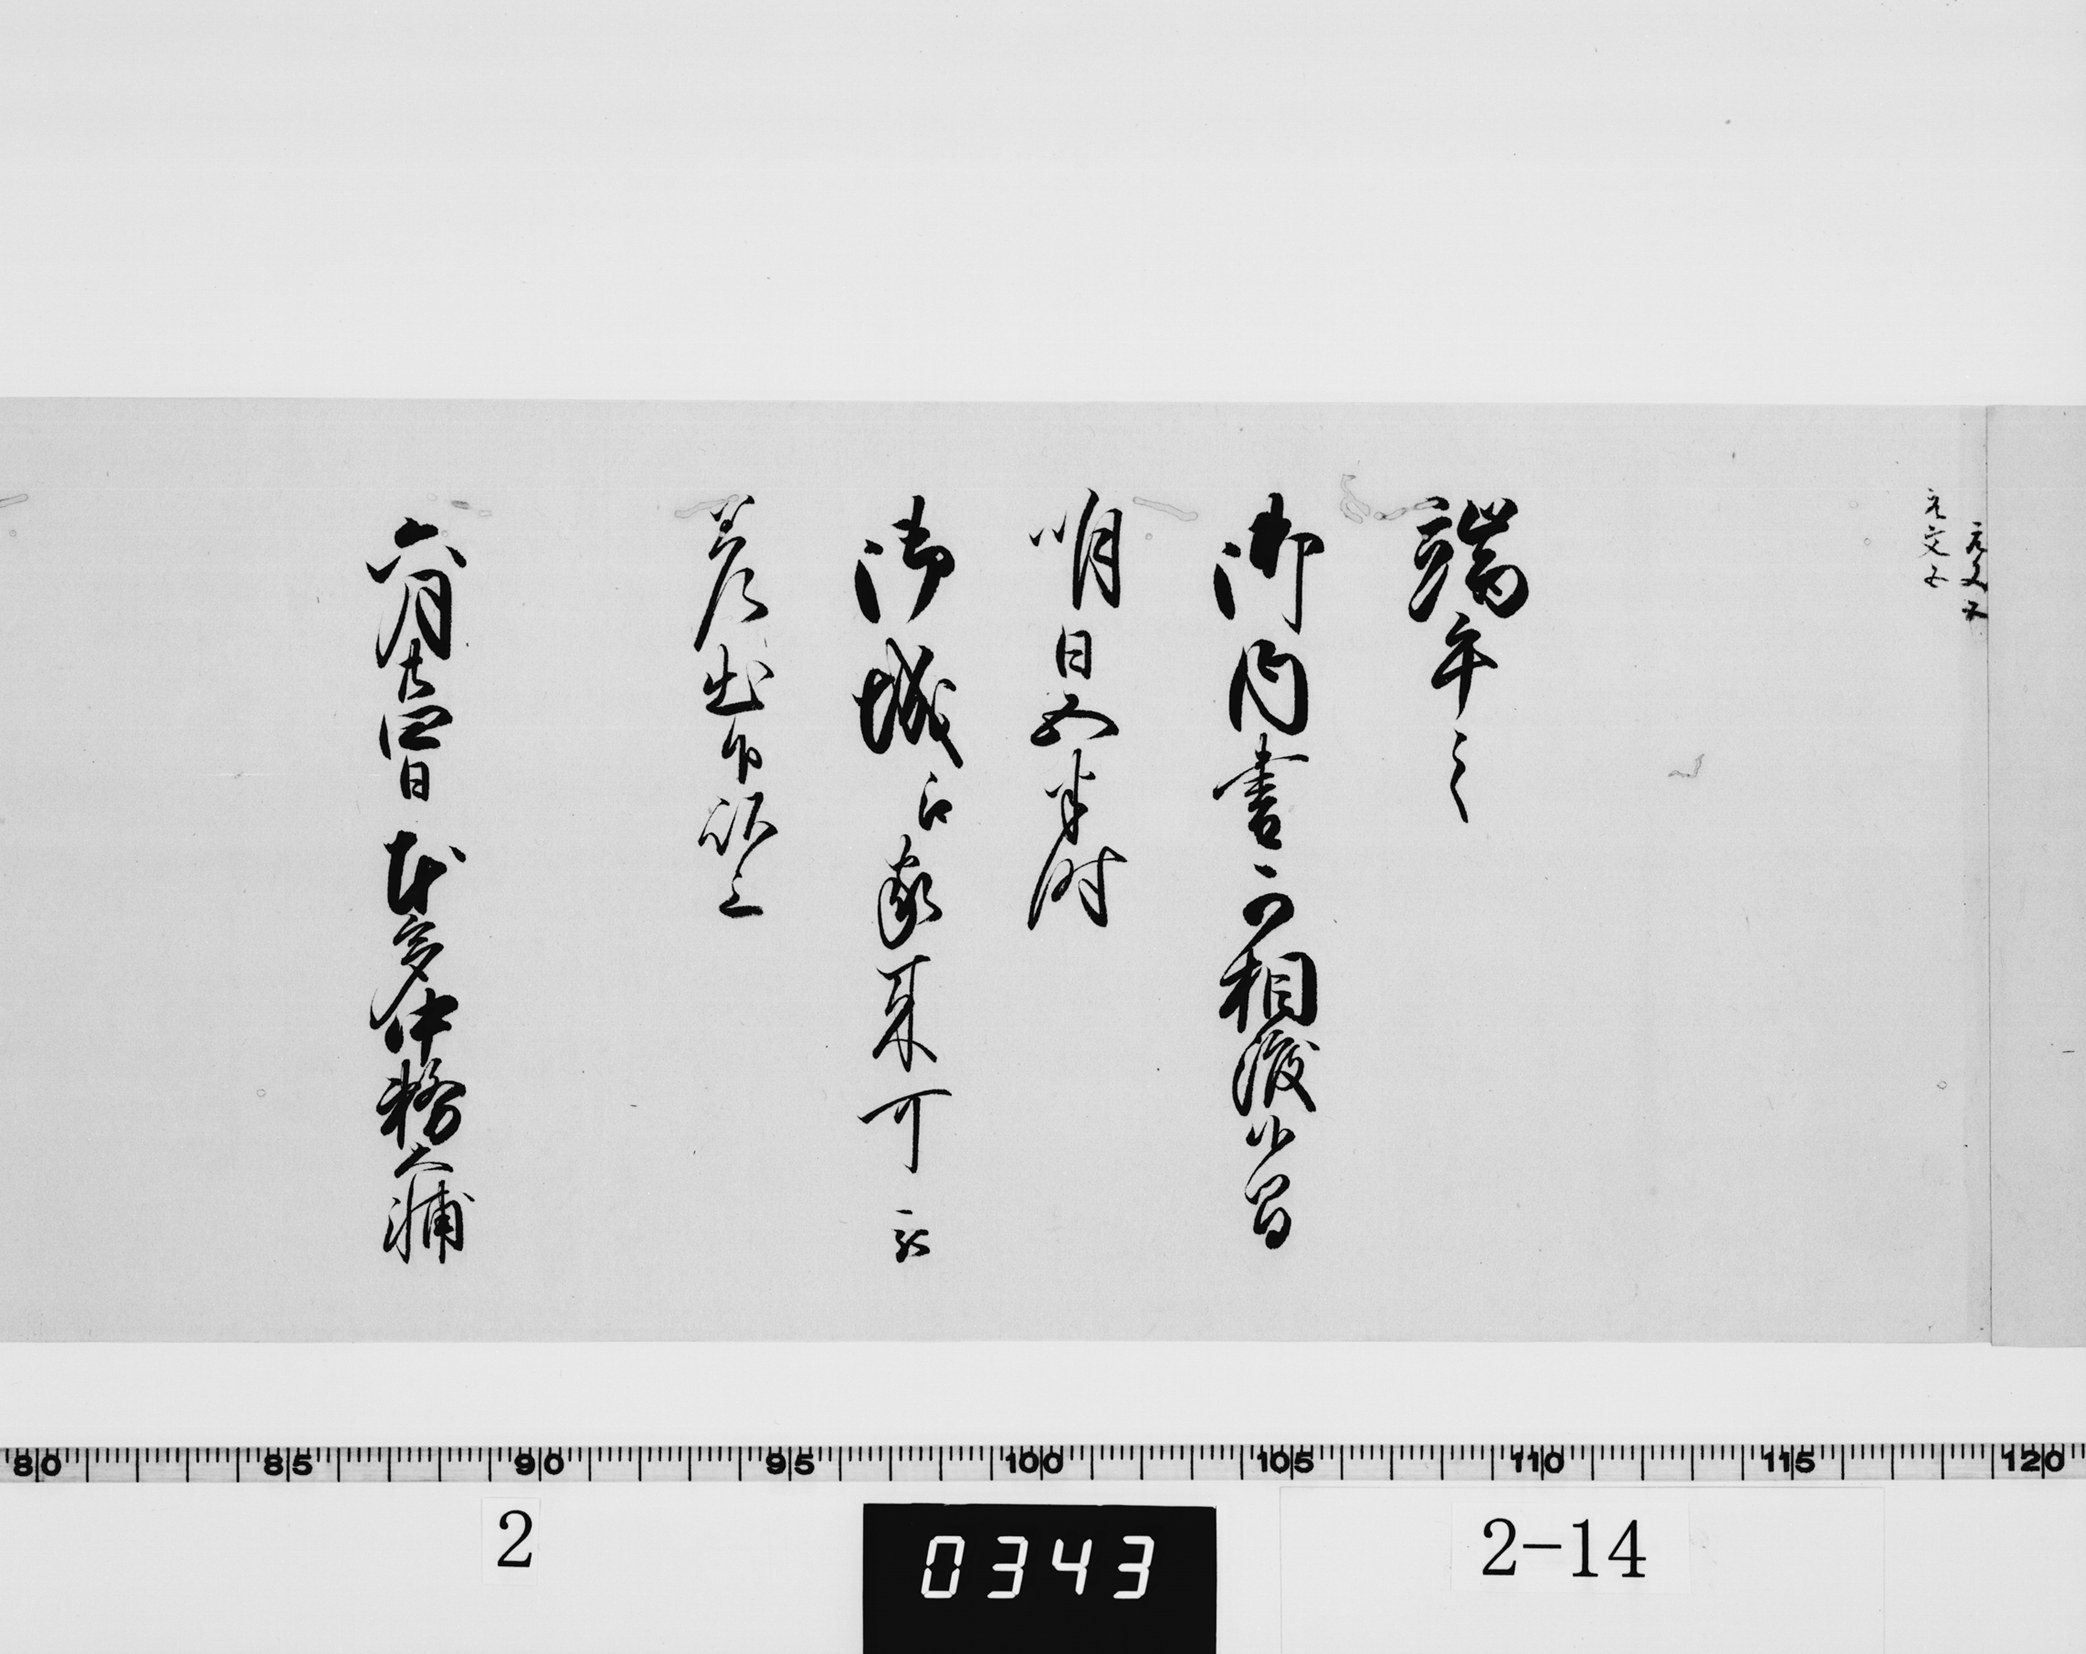 元文五
元文五
端午之
御内書可相渡候間
明日五半時
御城江家来可被
差出候以上
六月廿四日 本多中務大輔
80 85 90 95 100 105 110 115 120
2
0343
2-14